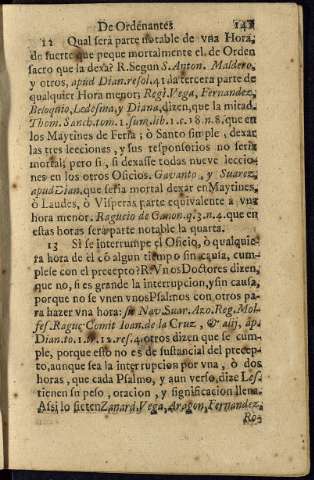 De Ordenantes 141
12 Qual será parte notable de vna Hora,
de suerte que peque mortalmente el de Orden
sacro que la dexa? R. Segun S. Anton. Maldero,
y otros, apud Dian. resol. 41 la tercera parte de
qualquier Hora menor; Regi. Vega, Fernandez,
Beloqnio, Ledesma, y Diana, dizen, que la mitad.
Thom. Sanch. tom. 1. sum. lib. 1. c. 18. n. 8. que en
los Maytines de Feria; ò Santo simple, dexar
las tres lecciones, y sus responsorios no seria
mortal; pero si, si dexasse todas nueve leccio-
nes en los otros Oficios. Gavanto, y Suarez,
apud Dian. que seria mortal dexar en Maytines,
ò Laudes, ò Visperas parte equivalente a vna
hora menor. Raguçio de Canon. q. 3. n. 4. que en
estas horas será parte notable la quarta.
13 Si se interrumpe el Oficio, ò qualquie-
ra hora de él cõ algun tiempo sin causa, cum-
plese con el precepto? R. Vnos Doctores dizen,
que no, si es grande la interrupcion, y sin causa,
porque no se vnen vnos Psalmos con otros pa-
ra hazer vna hora: sic Nav. Suar. Azo. Reg. Mol-
fes. Raguç. Comit. Ioan. de la Cruz, & alij, ap.
Dian. to. 1. tr. 12. res. 4. otros dizen que se cum-
ple, porque esto no es de sustancial del precep-
to, aunque sea la interrupcion por vna, ò dos
horas, que cada Psalmo, y aun verso, dize Les.
tienen su peso, oracion, y significacion llena.
Assi lo siētē Zanard. Vega, Aragon, Fernandez,
Ro-